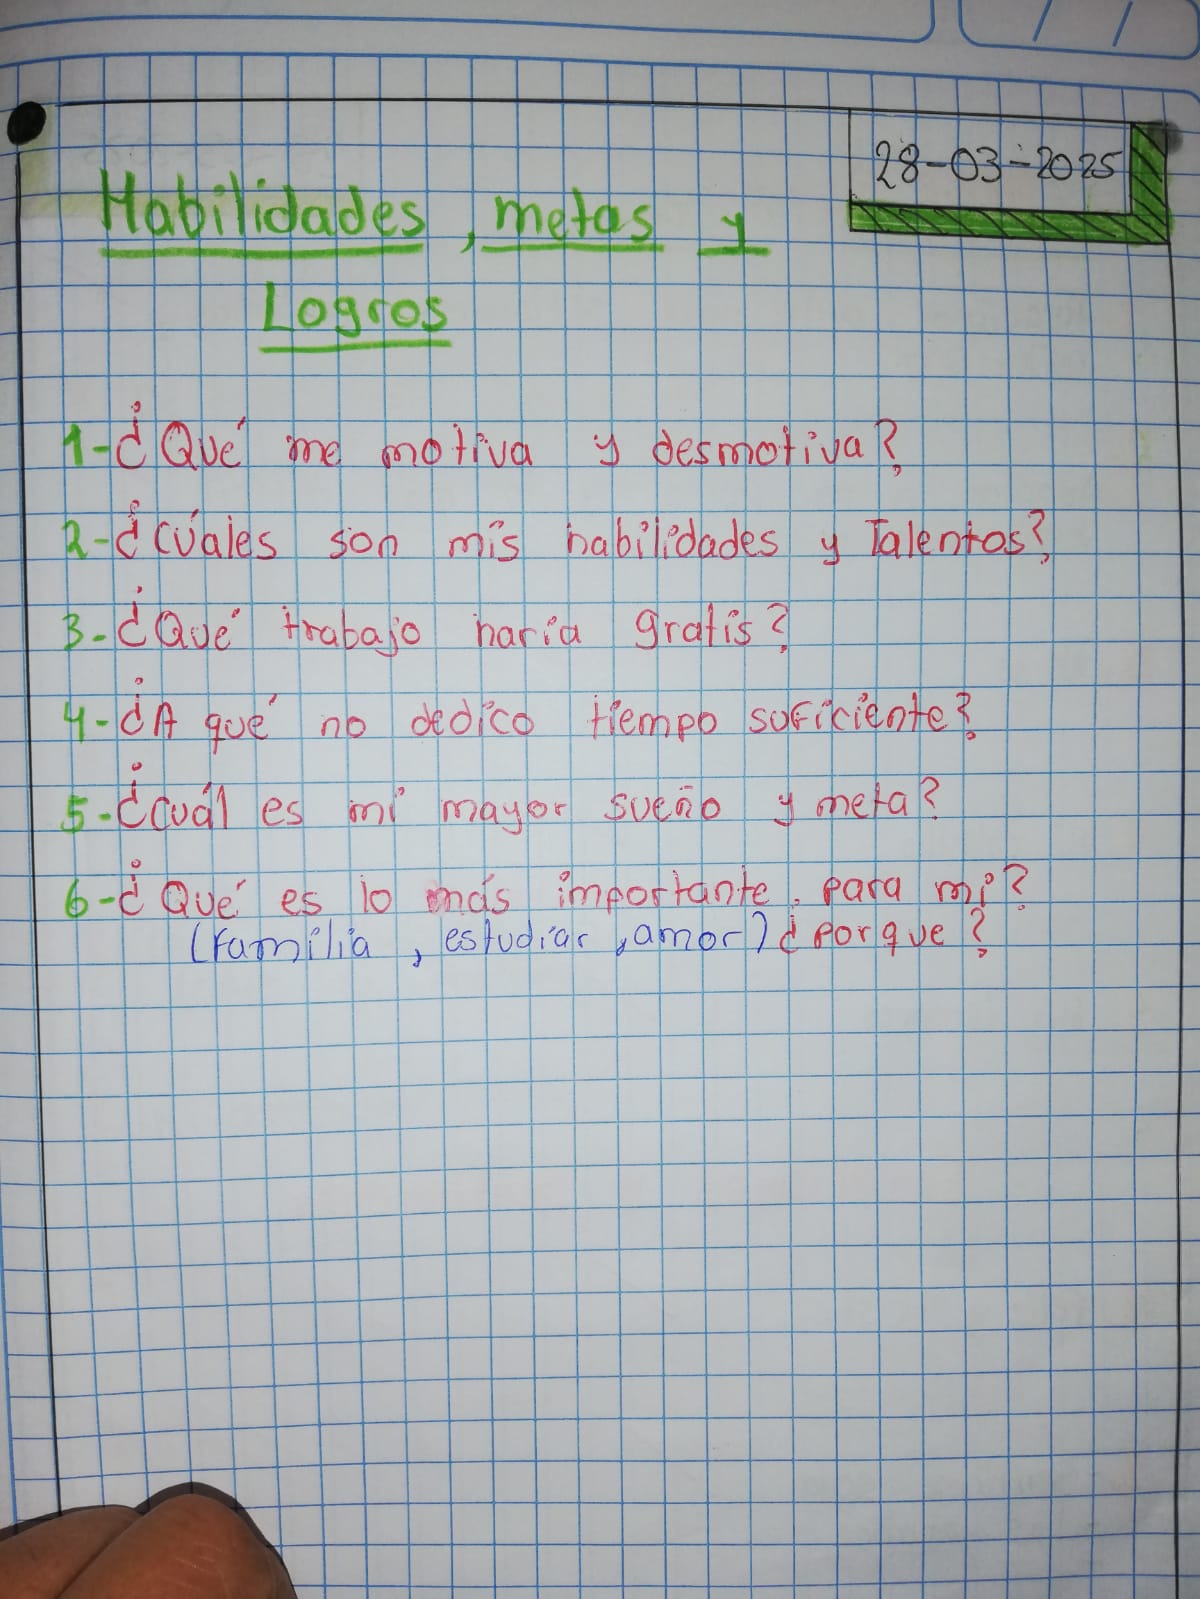 28-03-2025
Habilidades, metas y
Logros
1-¿Qué me motiva y desmotiva?
2-¿Cúales son mis habilidades y Talentos?
3-¿Qué trabajo haría gratis?
4-¿A qué no dedico tiempo suficiente?
5-¿Cuál es mi mayor sueño y meta?
6-¿Qué es lo más importante para mi?
(Familia, estudiar, amor)¿Porque?